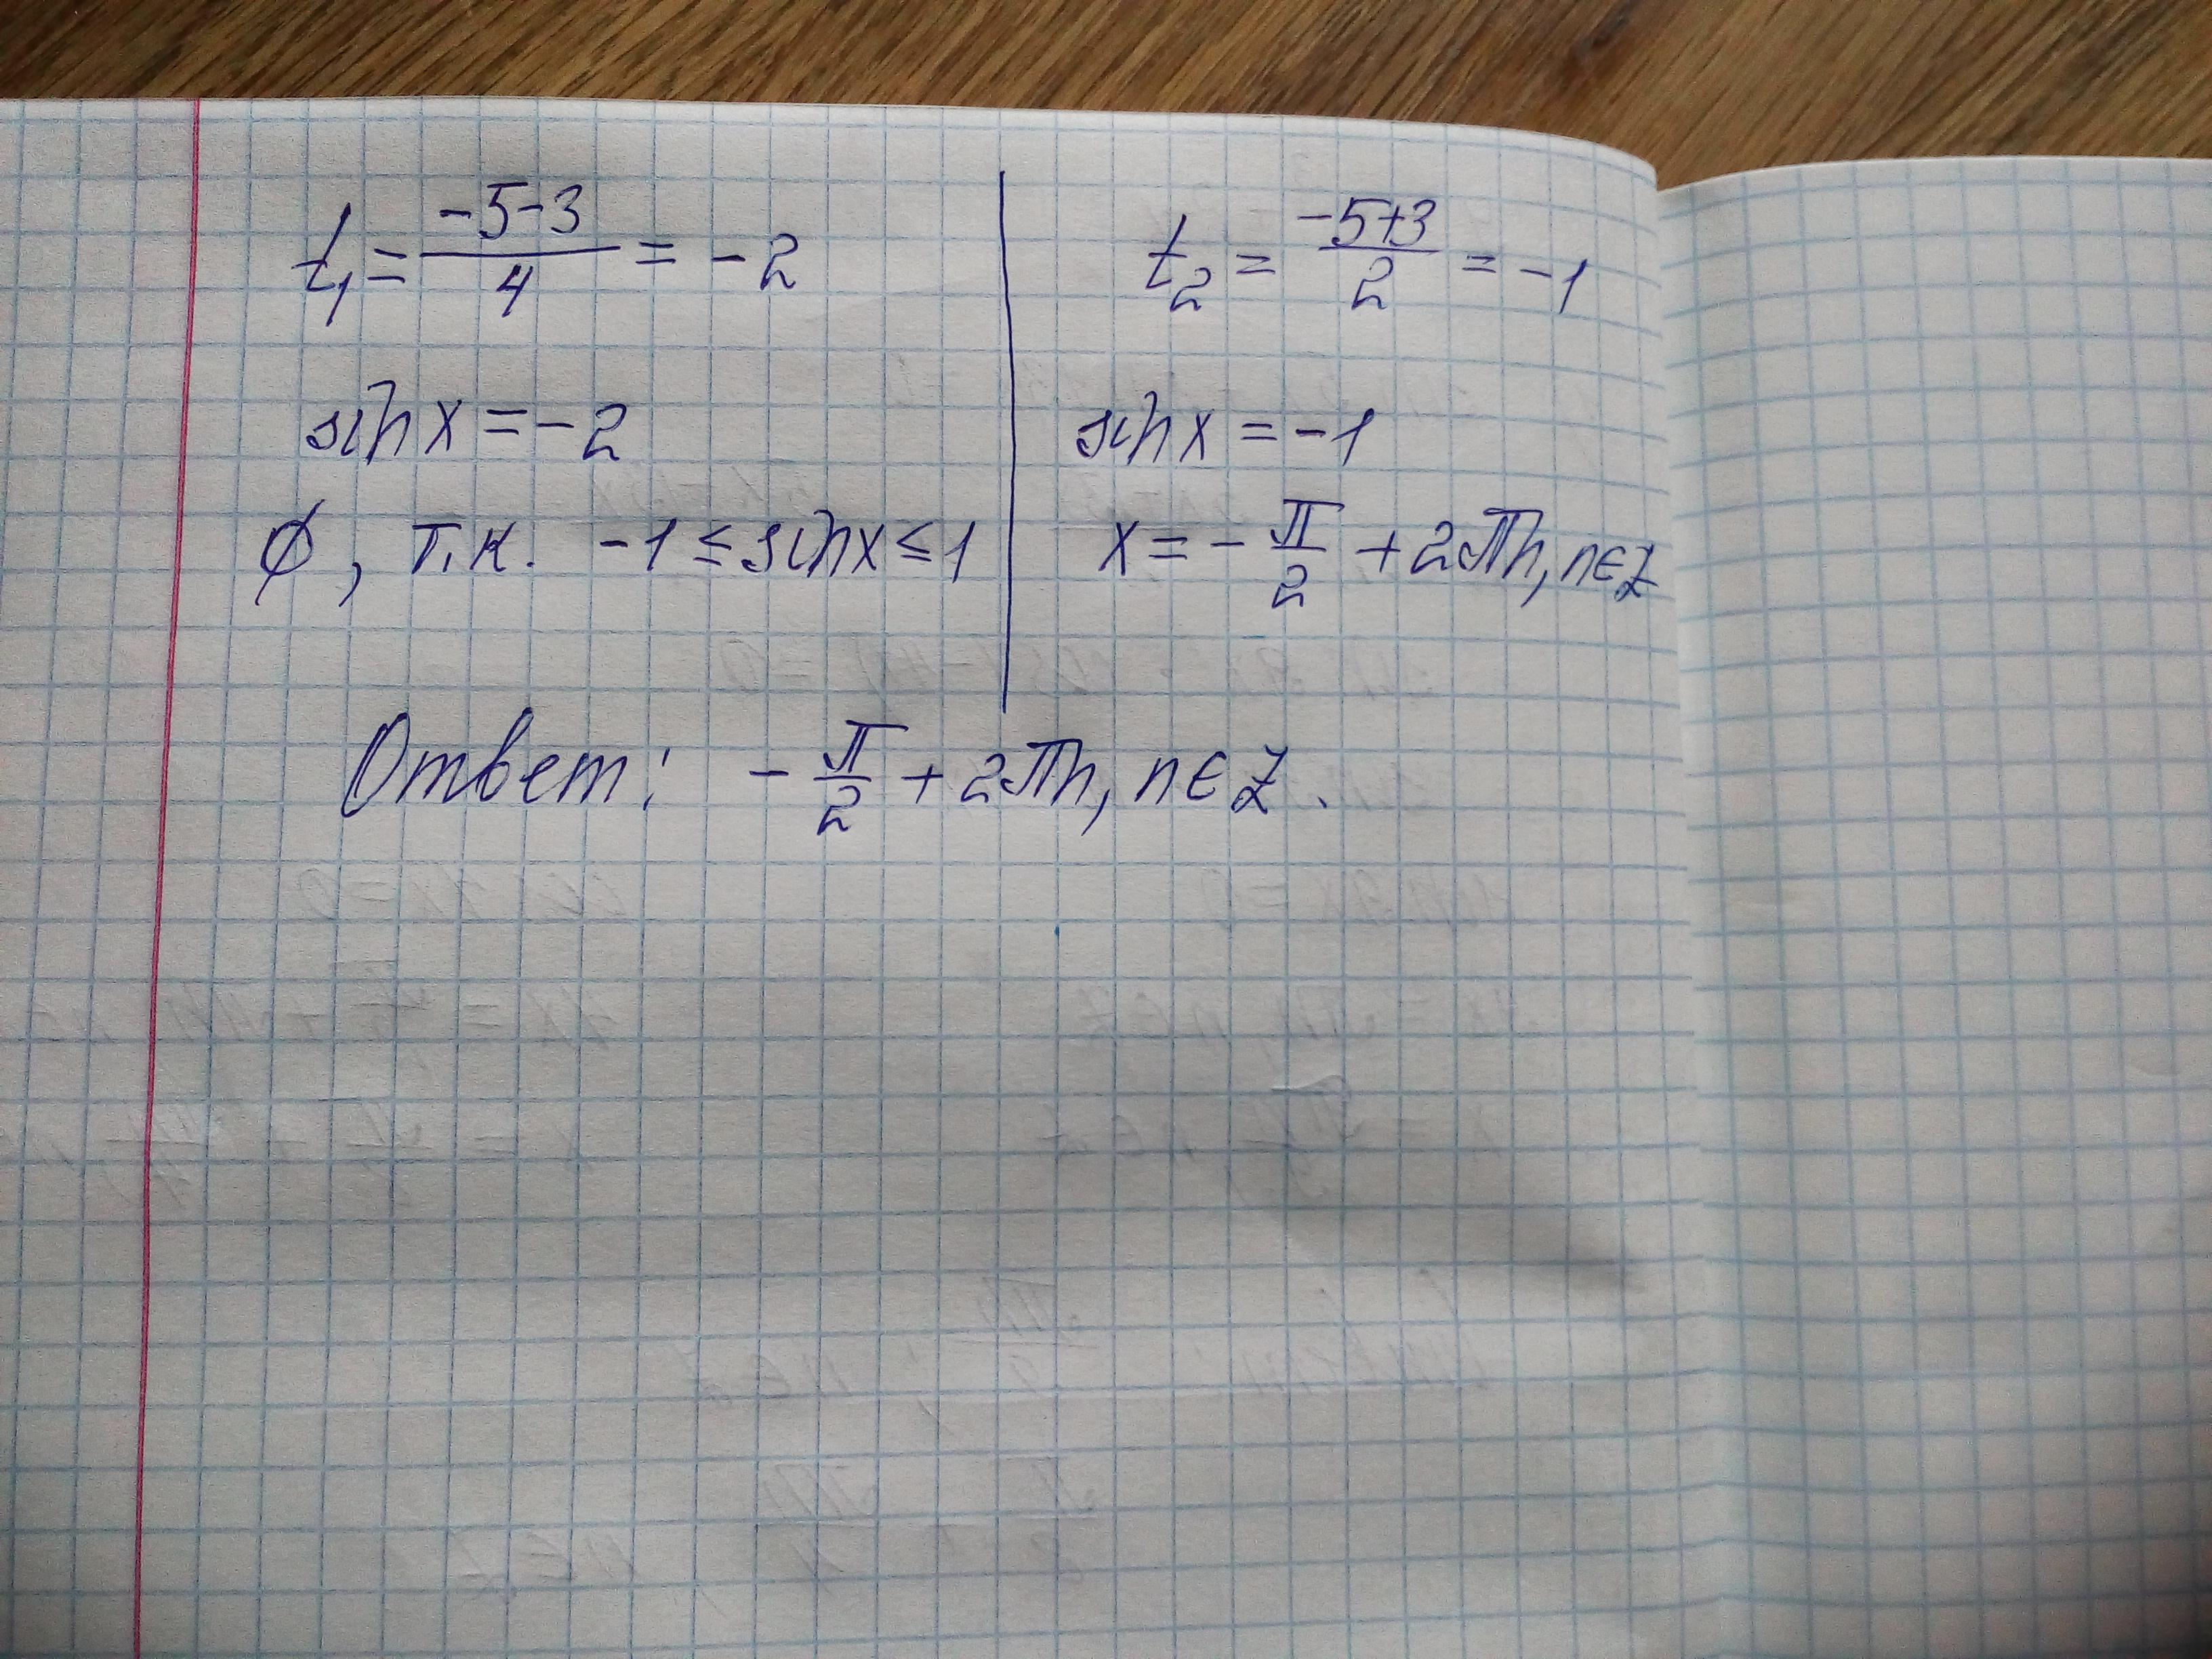 t₁ = (-5-3)/4 = -2
sin x = -2
∅, т.к. -1 ≤ sin x ≤ 1
t₂ = (-5+3)/2 = -1
sin x = -1
x = -π/2 + 2πn, n∈Z
Ответ: -π/2 + 2πn, n∈Z.